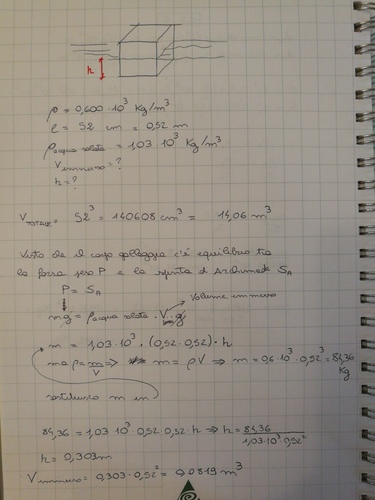 h
ρ = 0,600 · 10³ Kg/m³
l = 52 cm = 0,52 m
ρ acqua salata = 1,03 · 10³ Kg/m³
V immerso = ?
h = ?
V TOTALE = 52³ = 140608 cm³ = 14,06 m³
Visto che il corpo galleggia c'è equilibrio tra
la forza peso P e la spinta di Archimede S_A
P = S_A
Volume immerso
mg = ρ acqua salata · V · g
m = 1,03 · 10³ · (0,52 · 0,52) · h
ma ρ = m/V ⇒ m = ρV ⇒ m = 0,6 · 10³ · 0,52³ = 84,36 Kg
sostituisco m in
84,36 = 1,03 · 10³ · 0,52 · 0,52 · h ⇒ h = 84,36 / 1,03 · 10³ · 0,52²
h = 0,303 m
V immerso = 0,303 · 0,52² = 0,0819 m³